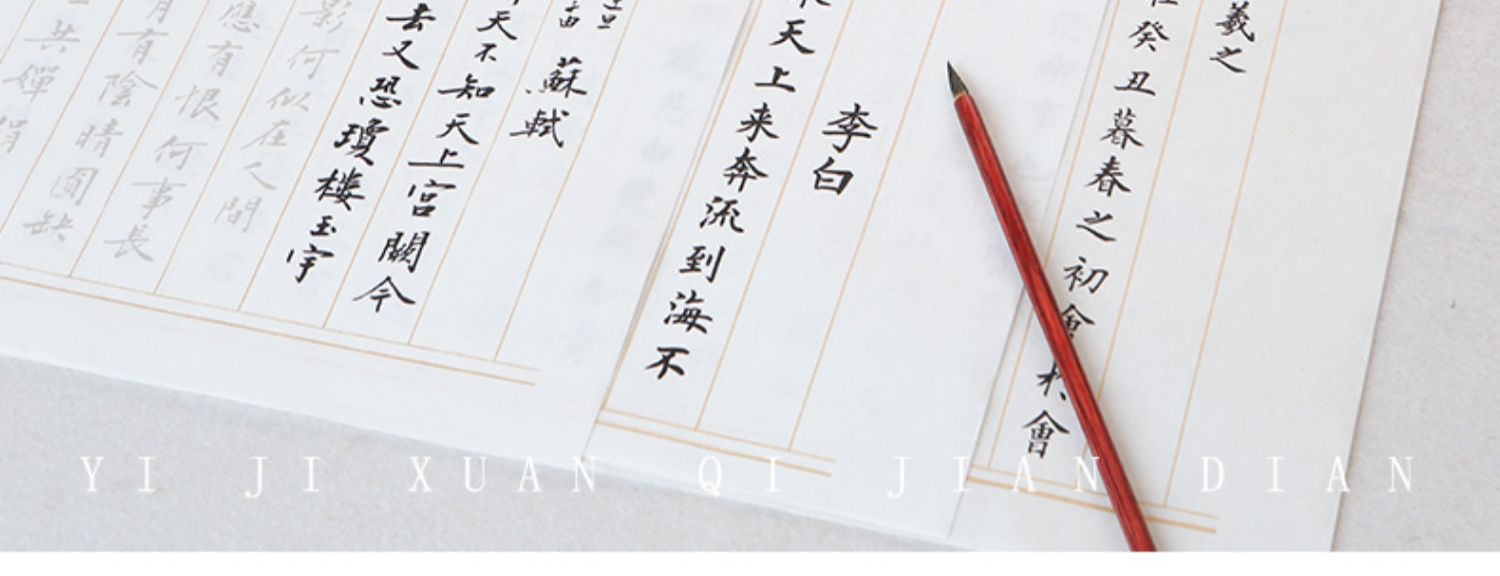 羲之
癸丑暮春之初會於會
李白
天上来奔流到海不
蘇軾
天不知天上宮闕今
去又恐瓊樓玉宇
影何似在人間
應有恨何事長
月有陰晴圓缺
共嬋娟
YI JI XUAN QI JIAN DIAN